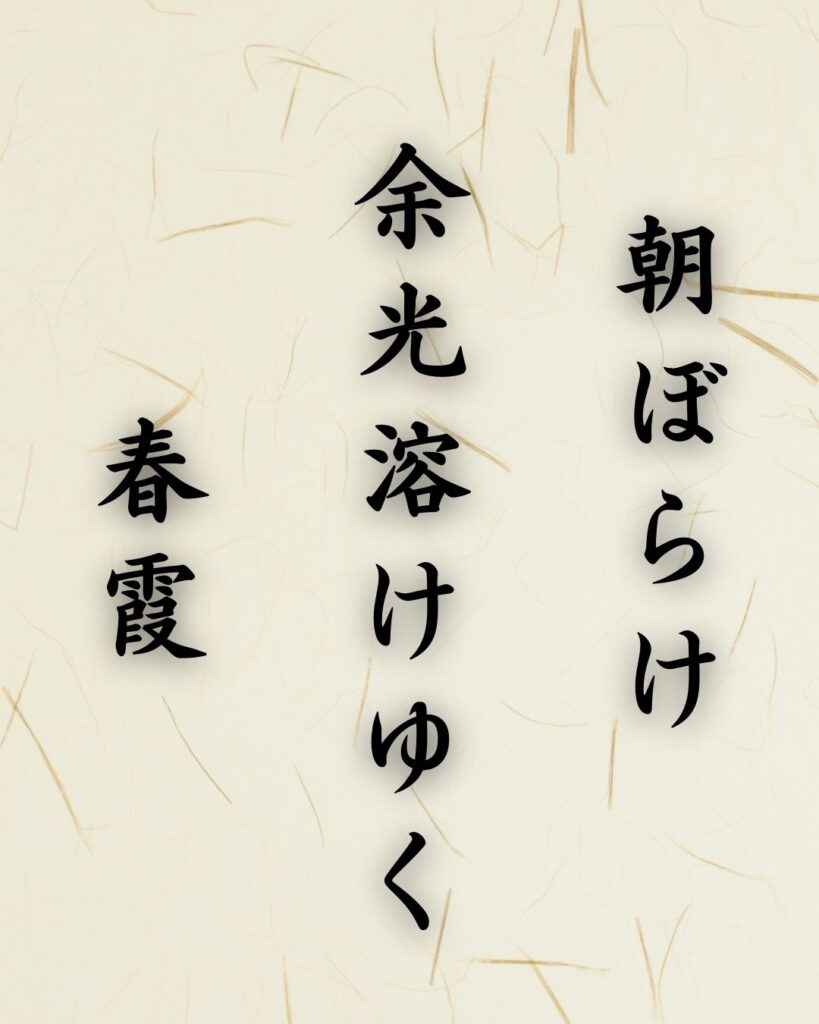 朝ぼらけ
余光溶けゆく
春霞